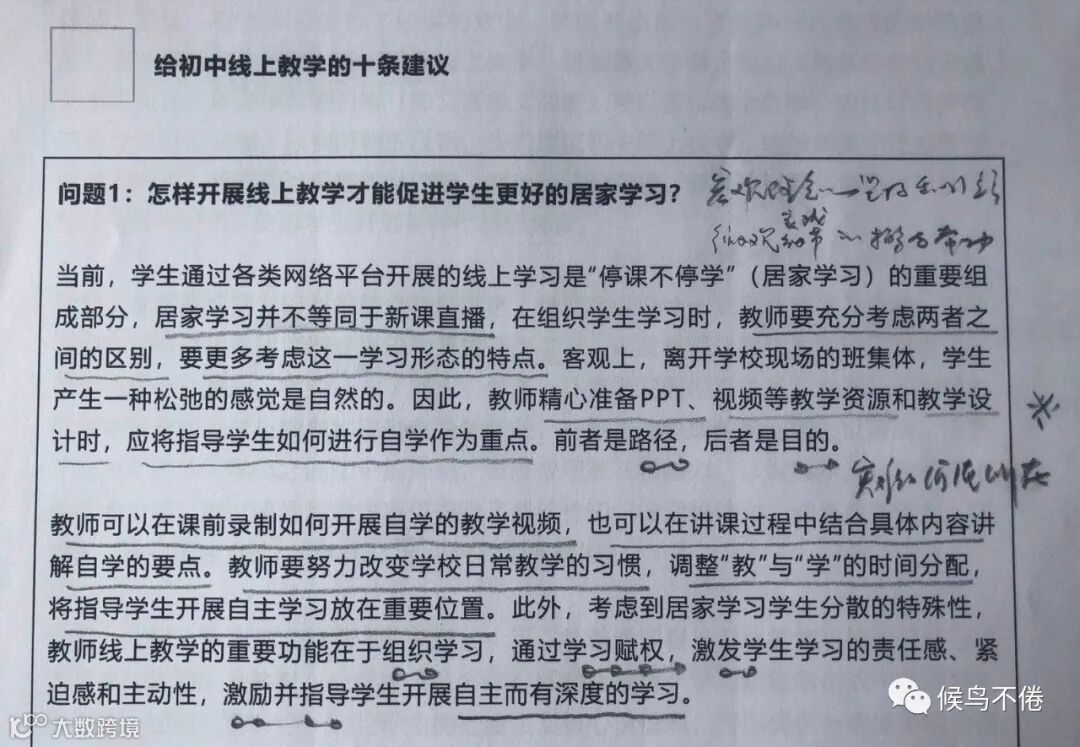 给初中线上教学的十条建议
问题1：怎样开展线上教学才能促进学生更好的居家学习？
当前，学生通过各类网络平台开展的线上学习是“停课不停学”（居家学习）的重要组
成部分，居家学习并不等同于新课直播，在组织学生学习时，教师要充分考虑两者之
间的区别，要更多考虑这一学习形态的特点。客观上，离开学校现场的班集体，学生
产生一种松弛的感觉是自然的。因此，教师精心准备PPT、视频等教学资源和教学设
计时，应将指导学生如何进行自学作为重点。前者是路径，后者是目的。
教师可以在课前录制如何开展自学的教学视频，也可以在讲课过程中结合具体内容讲
解自学的要点。教师要努力改变学校日常教学的习惯，调整“教”与“学”的时间分配，
将指导学生开展自主学习放在重要位置。此外，考虑到居家学习学生分散的特殊性，
教师线上教学的重要功能在于组织学习，通过学习赋权，激发学生学习的责任感、紧
迫感和主动性，激励并指导学生开展自主而有深度的学习。
候鸟不倦
大数跨境